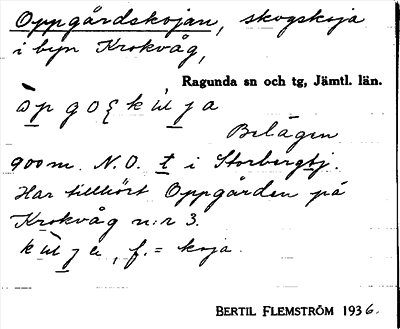 Oppgårdskojan, skogskoja
i byn Krokvåg,
Ragunda sn och tg, Jämtl. län.
Belägen
900 m. N.O. t i Storbergtj.
Har tillhört Oppgården på
Krokvåg n:r 3.
f. = koja.
BERTIL FLEMSTRÖM 1936.